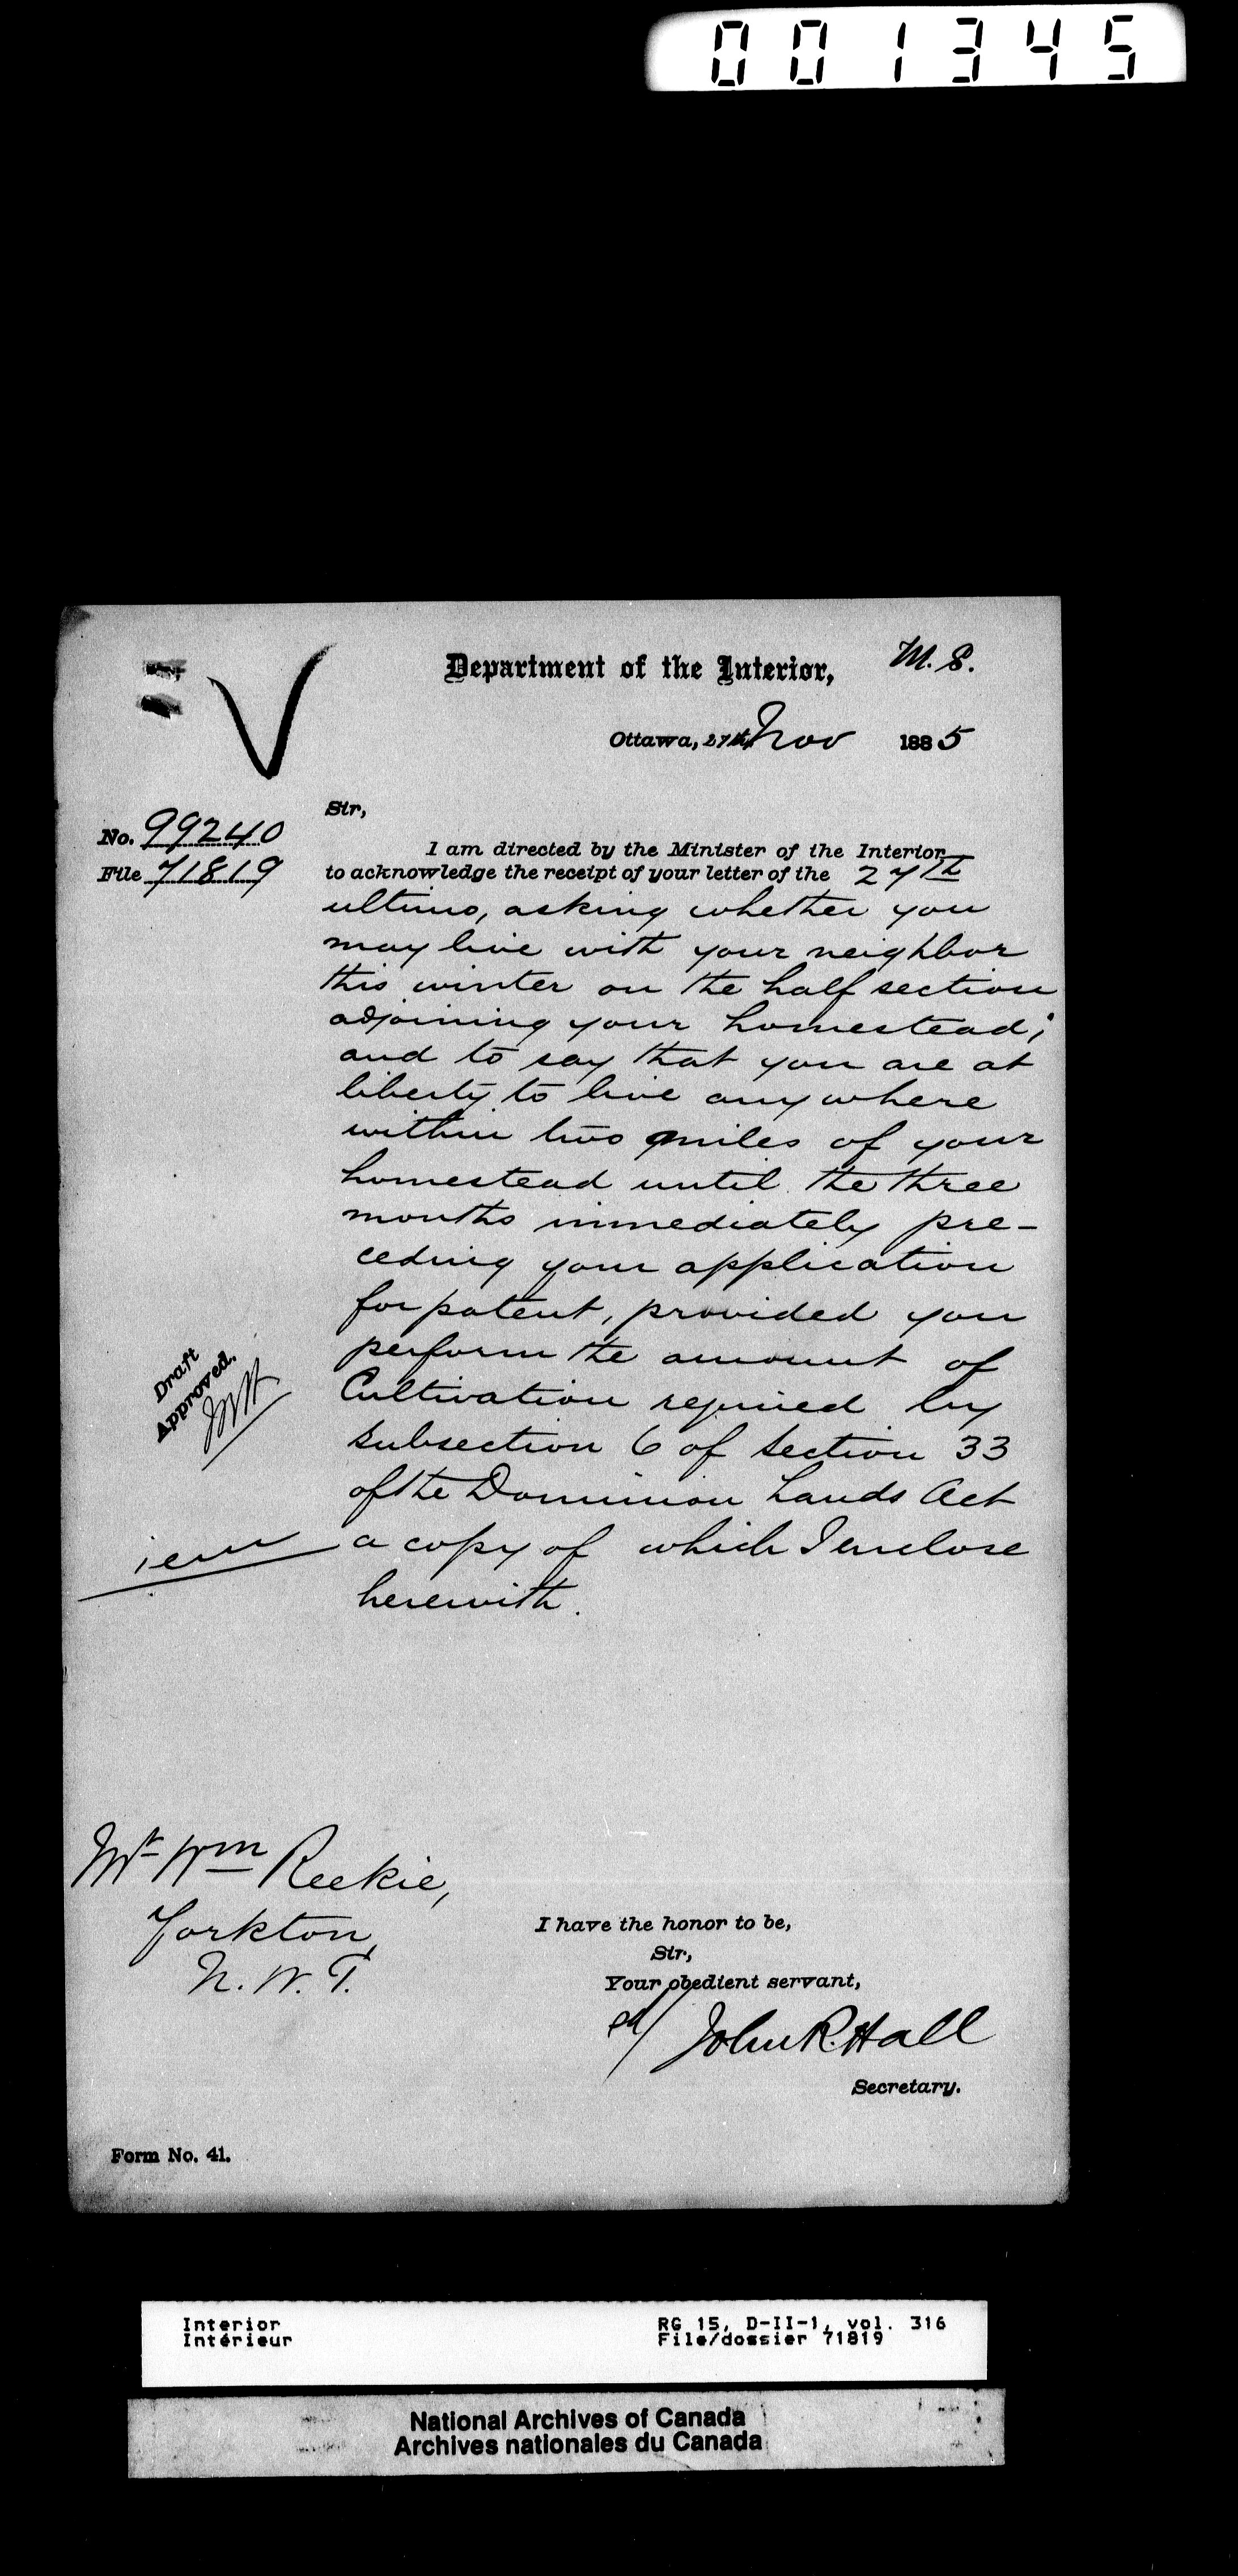 001345
M. S.
Department of the Interior,
Ottawa, 27th Nov 1885
Sir,
No. 99240
File 71819
I am directed by the Minister of the Interior
to acknowledge the receipt of your letter of the 27th
ultimo, asking whether you
may live with your neighbor
this winter on the half section
adjoining your homestead;
and to say that you are at
liberty to live anywhere
within two miles of your
homestead until the three
months immediately pre-
ceding your application
for patent, provided you
perform the amount of
Cultivation required by
subsection 6 of section 33
of the Dominion Lands Act
a copy of which I enclose
herewith.
Draft
Approved.
Mr Wm Reekie,
Yorkton,
N.W.T.
I have the honor to be,
Sir,
Your obedient servant,
John R. Hall
Secretary.
Form No. 41.
Interior
Intérieur
RG 15, D-II-1, vol. 316
File/dossier 71819
National Archives of Canada
Archives nationales du Canada